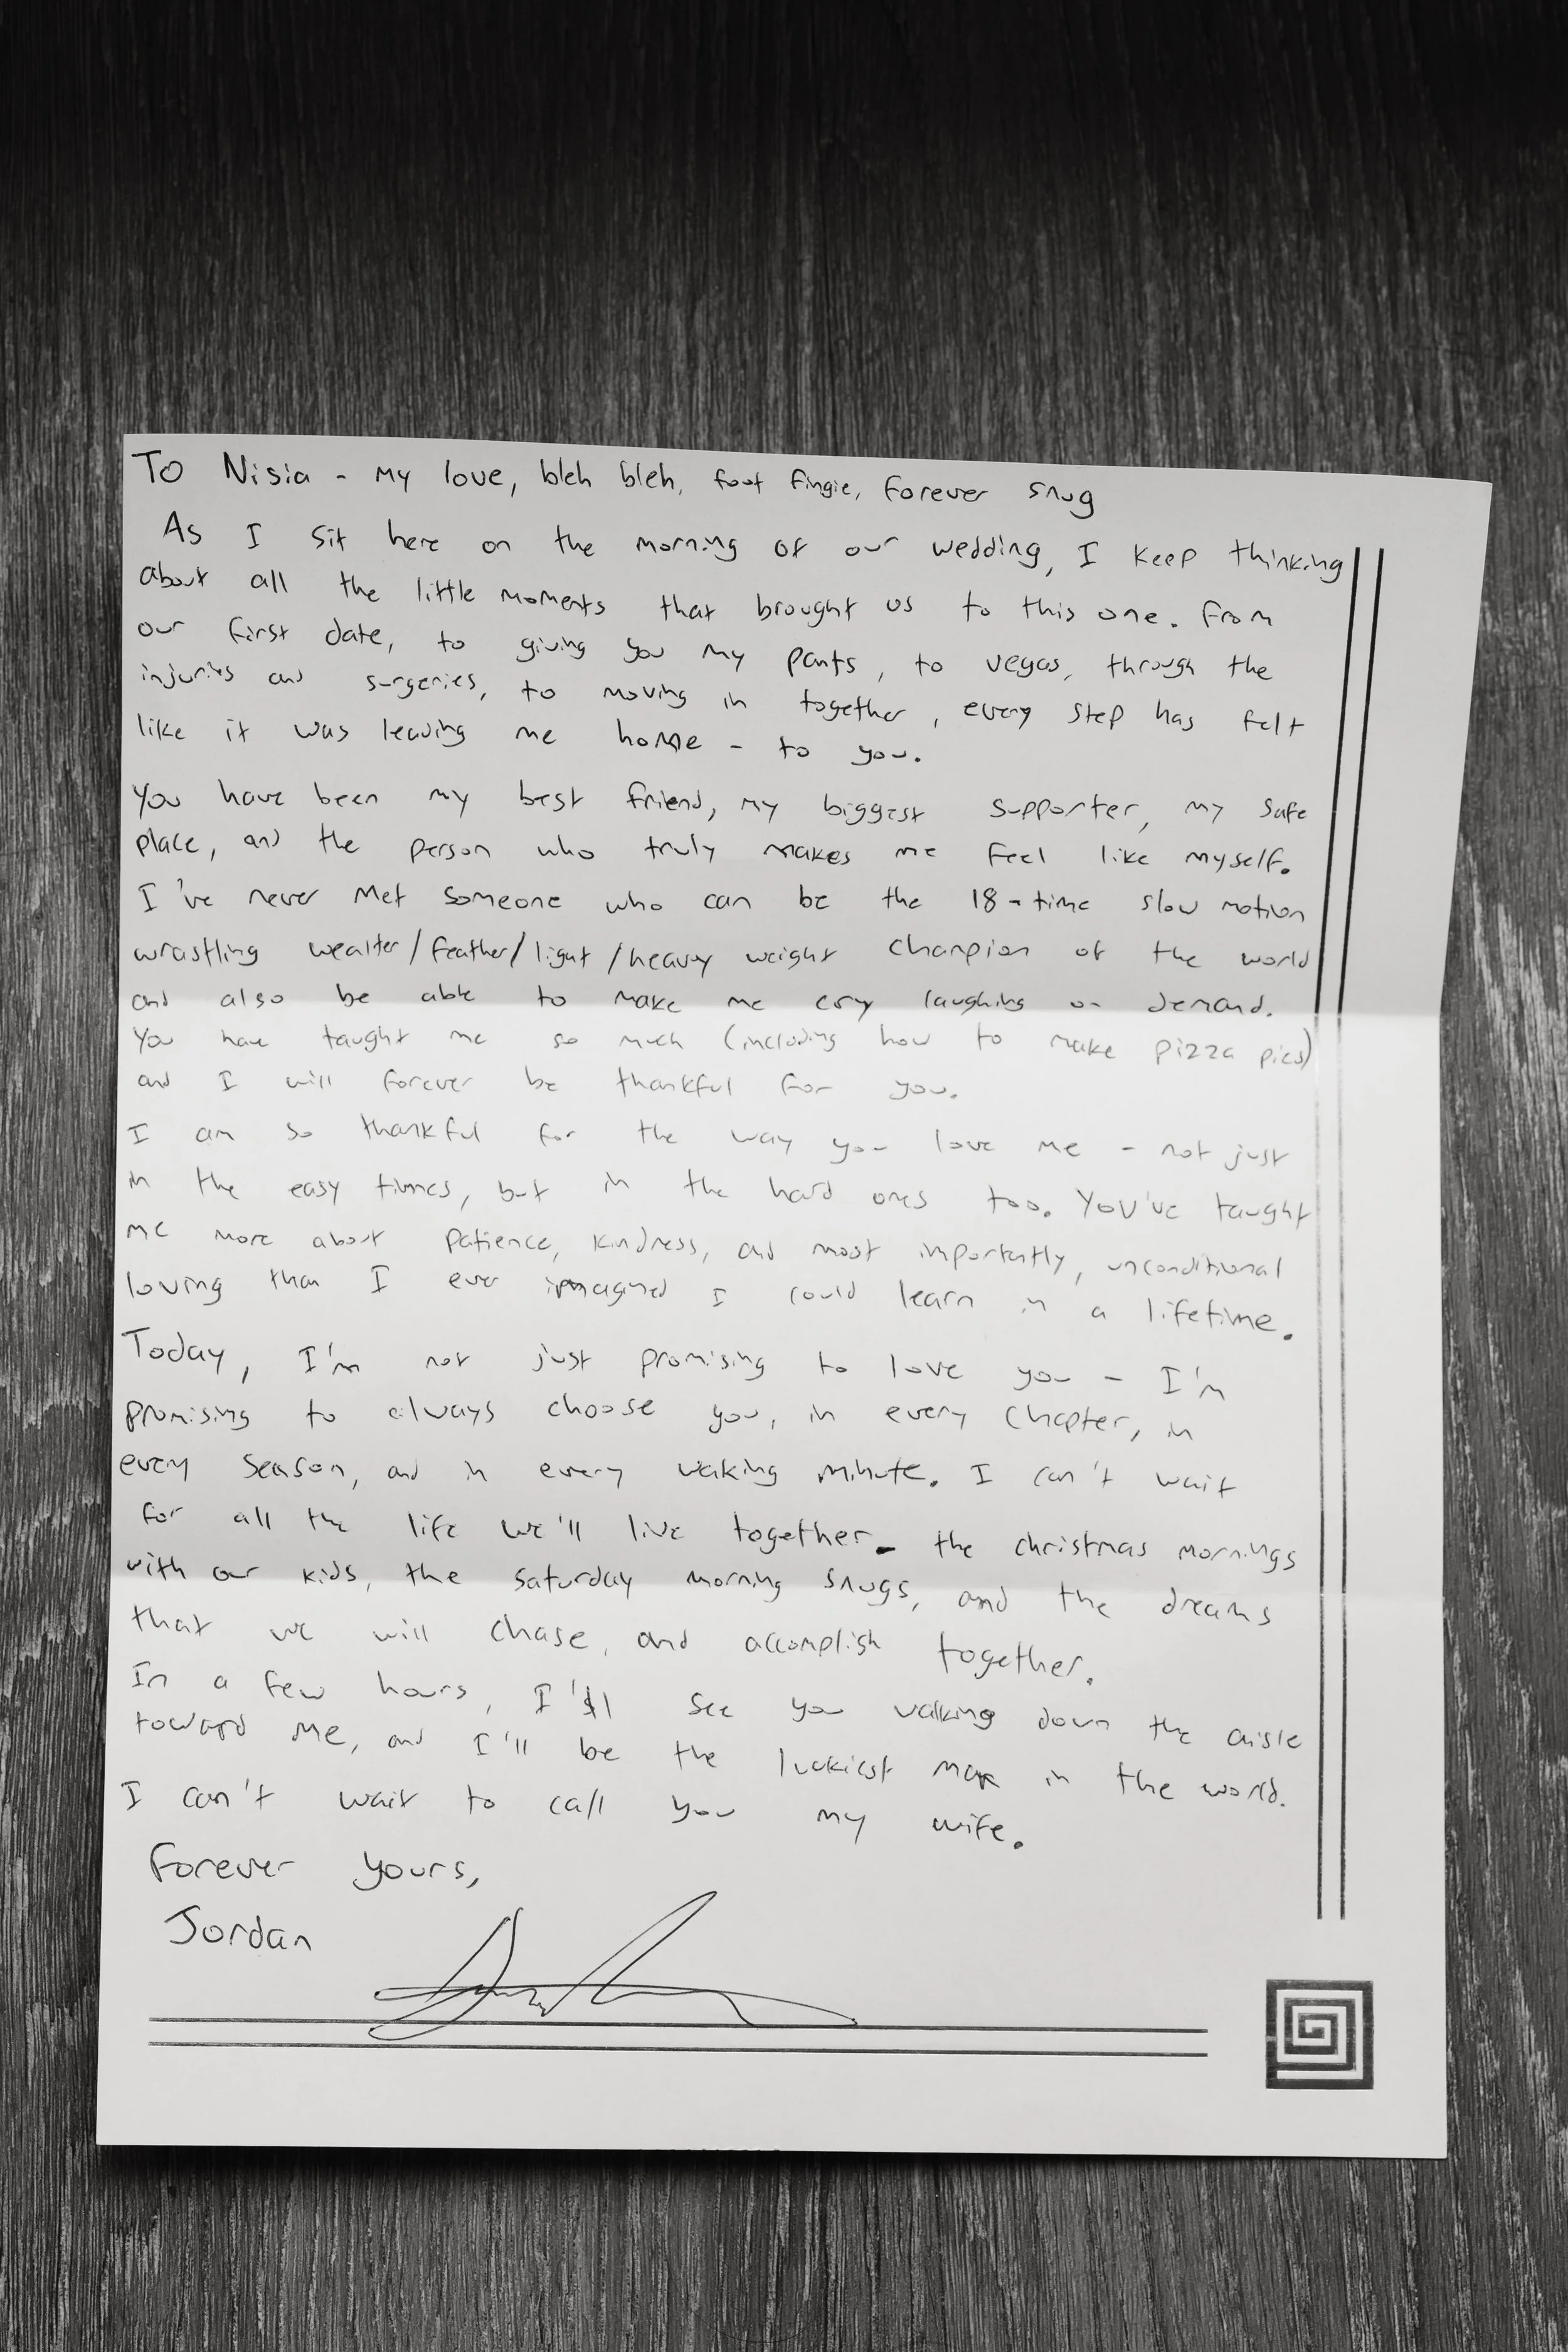 To Nisia - my love, bleh bleh, foot fingie, forever snug
As I sit here on the morning of our wedding, I keep thinking
about all the little moments that brought us to this one. From
our first date, to giving you my pants, to vegas, through the
injuries and surgeries, to moving in together, every step has felt
like it was leading me home - to you.
You have been my best friend, my biggest supporter, my safe
place, and the person who truly makes me feel like myself.
I've never met someone who can be the 18-time slow motion
wrastling wealter/feather/light/heavy weight champion of the world
and also be able to make me cry laughing on demand.
You have taught me so much (including how to make pizza pies)
and I will forever be thankful for you.
I am so thankful for the way you love me - not just
in the easy times, but in the hard ones too. You've taught
me more about patience, kindness, and most importantly, unconditional
loving than I ever imagined I could learn in a lifetime.
Today, I'm not just promising to love you - I'm
promising to always choose you, in every chapter, in
every season, and in every waking minute. I can't wait
for all the life we'll live together - the christmas mornings
with our kids, the saturday morning snugs, and the dreams
that we will chase, and accomplish together.
In a few hours, I'll see you walking down the aisle
toward me, and I'll be the luckiest man in the world.
I can't wait to call you my wife.
Forever yours,
Jordan